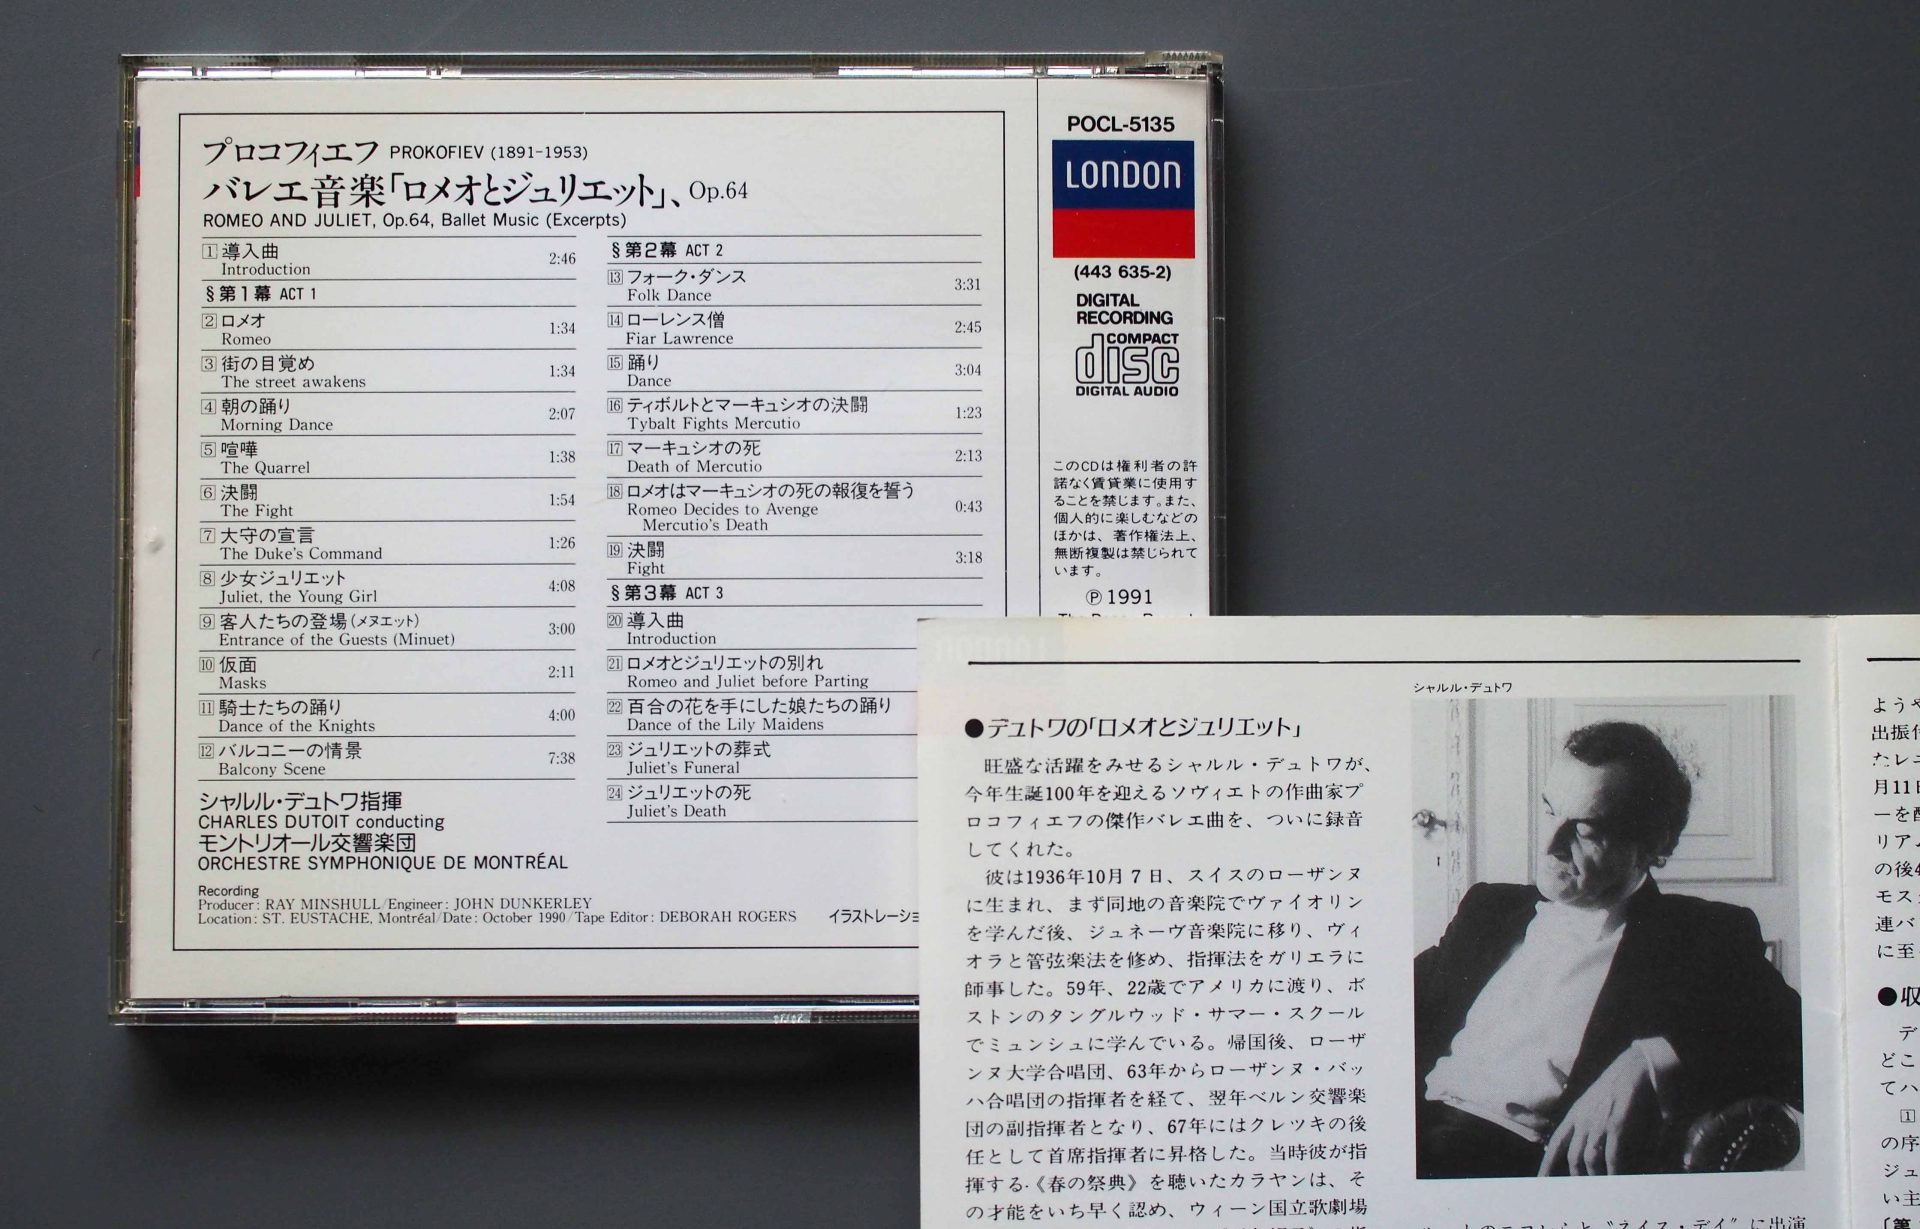 プロコフィエフ PROKOFIEV (1891-1953)
バレエ音楽「ロメオとジュリエット」、Op.64
ROMEO AND JULIET, Op.64, Ballet Music (Excerpts)
1 導入曲 2:46
Introduction
§第1幕 ACT 1
2 ロメオ 1:34
Romeo
3 街の目覚め 1:34
The street awakens
4 朝の踊り 2:07
Morning Dance
5 喧嘩 1:38
The Quarrel
6 決闘 1:54
The Fight
7 大守の宣言 1:26
The Duke's Command
8 少女ジュリエット 4:08
Juliet, the Young Girl
9 客人たちの登場(メヌエット) 3:00
Entrance of the Guests (Minuet)
10 仮面 2:11
Masks
11 騎士たちの踊り 4:00
Dance of the Knights
12 バルコニーの情景 7:38
Balcony Scene
§第2幕 ACT 2
13 フォーク・ダンス 3:31
Folk Dance
14 ローレンス僧 2:45
Fiar Lawrence
15 踊り 3:04
Dance
16 ティボルトとマーキュシオの決闘 1:23
Tybalt Fights Mercutio
17 マーキュシオの死 2:13
Death of Mercutio
18 ロメオはマーキュシオの死の報復を誓う 0:43
Romeo Decides to Avenge
Mercutio's Death
19 決闘 3:18
Fight
§第3幕 ACT 3
20 導入曲
Introduction
21 ロメオとジュリエットの別れ
Romeo and Juliet before Parting
22 百合の花を手にした娘たちの踊り
Dance of the Lily Maidens
23 ジュリエットの葬式
Juliet's Funeral
24 ジュリエットの死
Juliet's Death
シャルル・デュトワ指揮
CHARLES DUTOIT conducting
モントリオール交響楽団
ORCHESTRE SYMPHONIQUE DE MONTRÉAL
Recording
Producer: RAY MINSHULL/Engineer: JOHN DUNKERLEY
Location: ST. EUSTACHE, Montréal/Date: October 1990/Tape Editor: DEBORAH ROGERS イラストレーショ
POCL-5135
LONDON
(443 635-2)
DIGITAL
RECORDING
COMPACT
disc
DIGITAL AUDIO
このCDは権利者の許
諾なく賃貸業に使用す
ることを禁じます。また、
個人的に楽しむなどの
ほかは、著作権法上、
無断複製は禁じられて
います。
Ⓟ1991
シャルル・デュトワ
●デュトワの「ロメオとジュリエット」
旺盛な活躍をみせるシャルル・デュトワが、
今年生誕100年を迎えるソヴィエトの作曲家プ
ロコフィエフの傑作バレエ曲を、ついに録音
してくれた。
彼は1936年10月7日、スイスのローザンヌ
に生まれ、まず同地の音楽院でヴァイオリン
を学んだ後、ジュネーヴ音楽院に移り、ヴィ
オラと管弦楽法を修め、指揮法をガリエラに
師事した。59年、22歳でアメリカに渡り、ボ
ストンのタングルウッド・サマー・スクール
でミュンシュに学んでいる。帰国後、ローザ
ンヌ大学合唱団、63年からローザンヌ・バッ
ハ合唱団の指揮者を経て、翌年ベルン交響楽
団の副指揮者となり、67年にはクレツキの後
任として首席指揮者に昇格した。当時彼が指
揮する《春の祭典》を聴いたカラヤンは、そ
の才能をいち早く認め、ウィーン国立歌劇場
ようや
出振付
たレニ
月11日
ーを配
リアム
の後4
モス
連バ
に至
●収
デ
どこ
てハ
1
の序
ジュ
い主